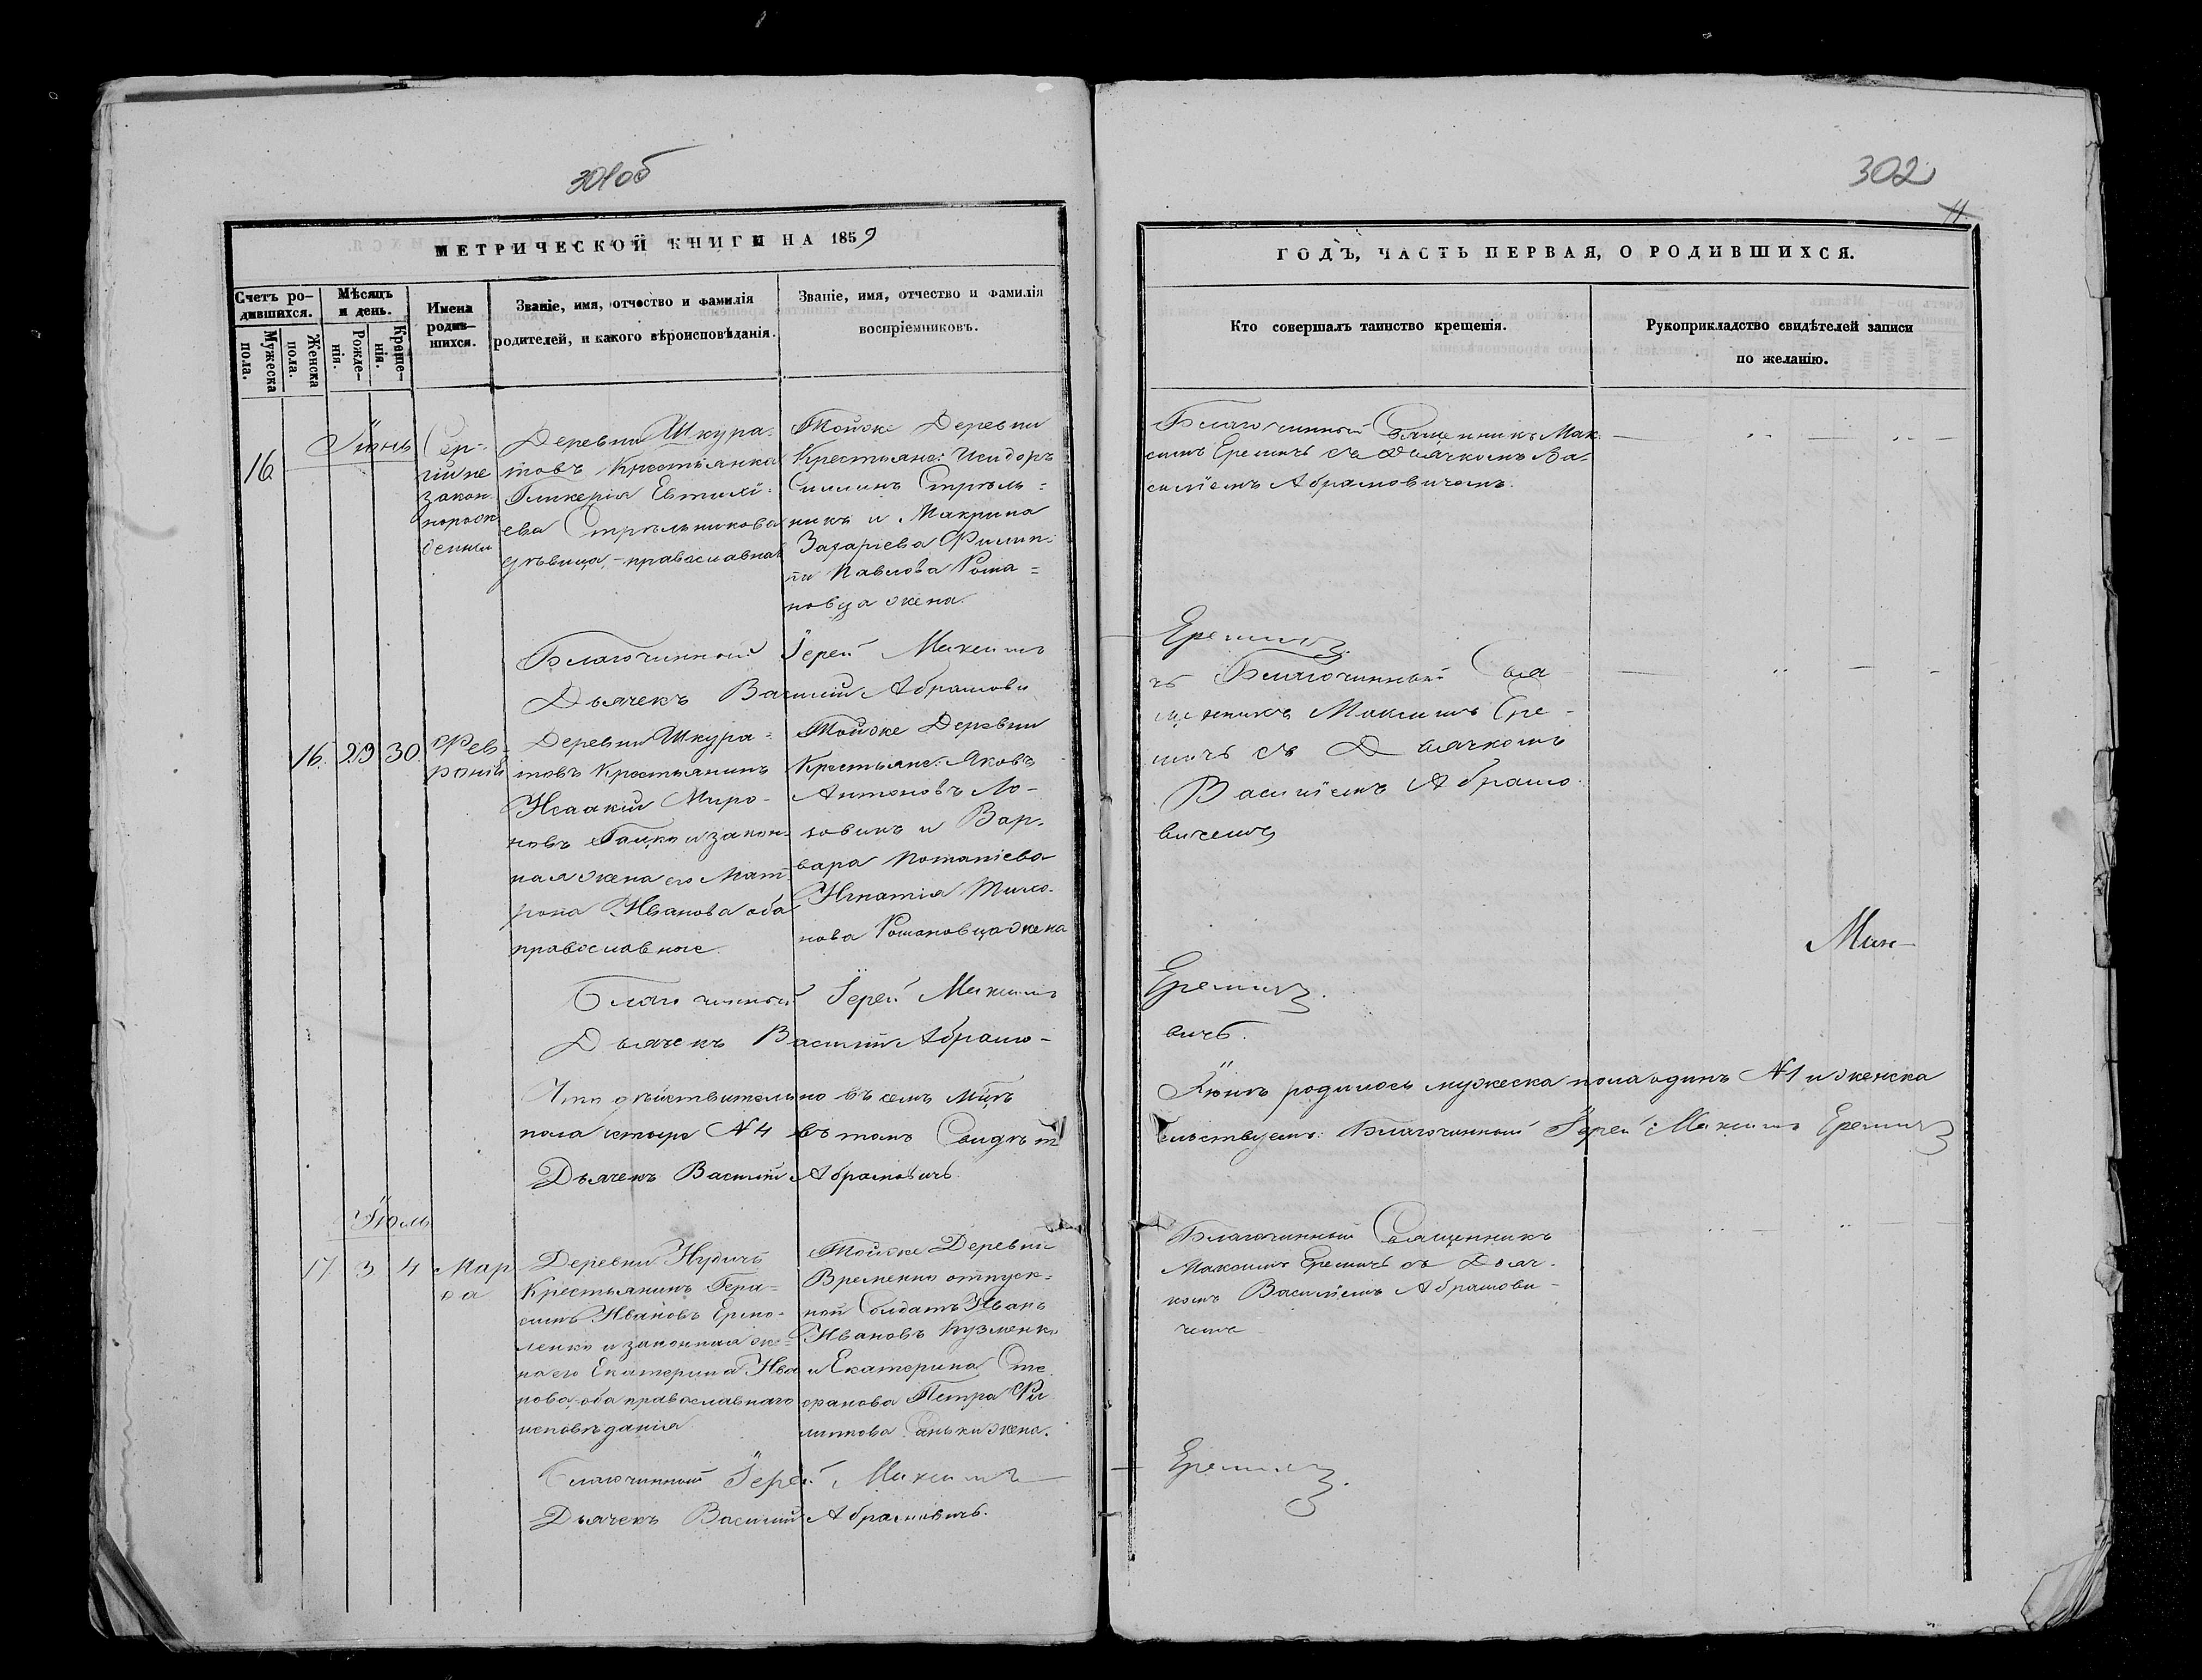 301об
302
11
МЕТРИЧЕСКОЙ КНИГИ НА 1859
ГОДЪ, ЧАСТЬ ПЕРВАЯ, О РОДИВШИХСЯ.
Счетъ ро-
дившихся.
Мужеска
пола.
Женска
пола.
Мѣсяцъ
и день.
Рожде-
нія.
Креще-
нія.
Имена
родив-
шихся.
Званіе, имя, отчество и фамилія
родителей, и какого вѣроисповѣданія.
Званіе, имя, отчество и фамилія
воспріемниковъ.
Кто совершалъ таинство крещенія.
Рукоприкладство свидѣтелей записи
по желанію.
16
Іюнь
Сер-
гій не
закон-
норож
денны
Деревни Шкура-
товъ Крестьянка
Гликерія Евтихі-
ева Стрѣльникова
дѣвица, - православная
Тойже Деревни
Крестьяне: Исидоръ
Силинъ Стрѣль=
никъ и Макрина
Захаріева Филип-
па Павлова Рома=
новца жена.
Благочинный Священникъ Мак-
симъ Еремичъ съ Дьячкомъ Ва-
силіемъ Абрамовичемъ.
Благочинный Іерей Максимъ
Еремичъ.
Дьячекъ Василій Абрамови
чъ
16. 29 30.
Фев-
ронія
Деревни Шкура=
товъ Крестьянинъ
Исаакій Миро-
новъ Гацко и закон-
ная жена его Мат-
рона Иванова оба
православные.
Тойже Деревни
Крестьяне: Яковъ
Антоновъ Ло-
ховикъ и Вар-
вара Потапіева
Игнатія Тихо-
нова Романовца жена
Благочинный Свя
щенникъ Максимъ Ере-
мичъ съ Дьячкомъ
Василіемъ Абрамо-
вичемъ
Благочинный Іерей Максимъ
Еремичъ.
Дьячекъ Василій Абрамо-
вичъ.
Что дѣйствительно въ семъ Мцѣ
Іюнѣ родилось мужеска пола одинъ №1 и женска
пола четыре №4 въ томъ Свидѣт
ельствуемъ: Благочинный Іерей Максимъ Еремичъ
Дьячекъ Василій Абрамовичъ.
Іюль
17. 3 4
Мар
ѳа
Деревни
Крестьянинъ Гера-
симъ Ивановъ Ермо-
ленко и законная же=
на его Екатерина Ива
нова, оба православнаго
исповѣданія
Тойже Деревни
Временно отпуск=
ной Солдатъ Иванъ
Ивановъ Кузменко
и Екатерина Сте
фанова Петра Фи
липпова жена.
Благочинный Священникъ
Максимъ Еремичъ съ Дьяч-
комъ Василіемъ Абрамови-
чемъ
Благочинный Іерей Максимъ
Еремичъ.
Дьячекъ Василий Абрамовичъ.